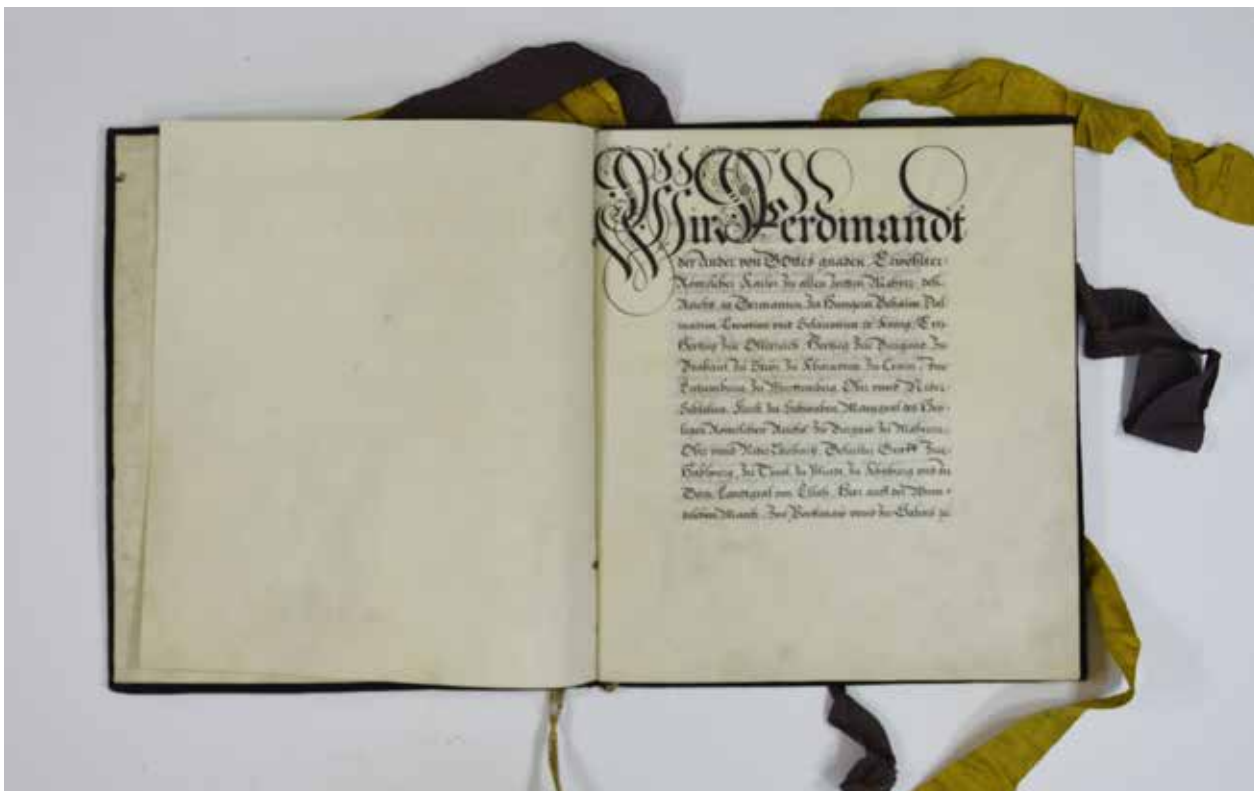 Wir Ferdinandt
der Ander von Gottes gnaden Erwöhlter
Römischer Kaiser Zu allen Zeitten Mehrer deß
Reichs, in Germanien, Zu Hungern Behaim Dal
matien Croatien und Sclavonien König, Ertz
Hertzog Zue Österreich, Hertzog Zue Burgund Zu
Brabant Zu Steir, Zu Kharnten Zu Crain, Zue
Lützemburg Zu Württemberg, Ober unnd Nider
Schlesien, Fürst Zu Schwaben Marggraf des Hey
ligen Römischen Reichs Zu Burgaw Zu Mähren,
Ober unnd Nider Graff Zue
Habspurg, Zu Tyrol, Zu Phierdt, Zu Khyburg und Zu
Görtz, Landtgraf im Elsaß, Herr auff der Windi
schen Marck, Zue Portenaw unnd Zu Salins